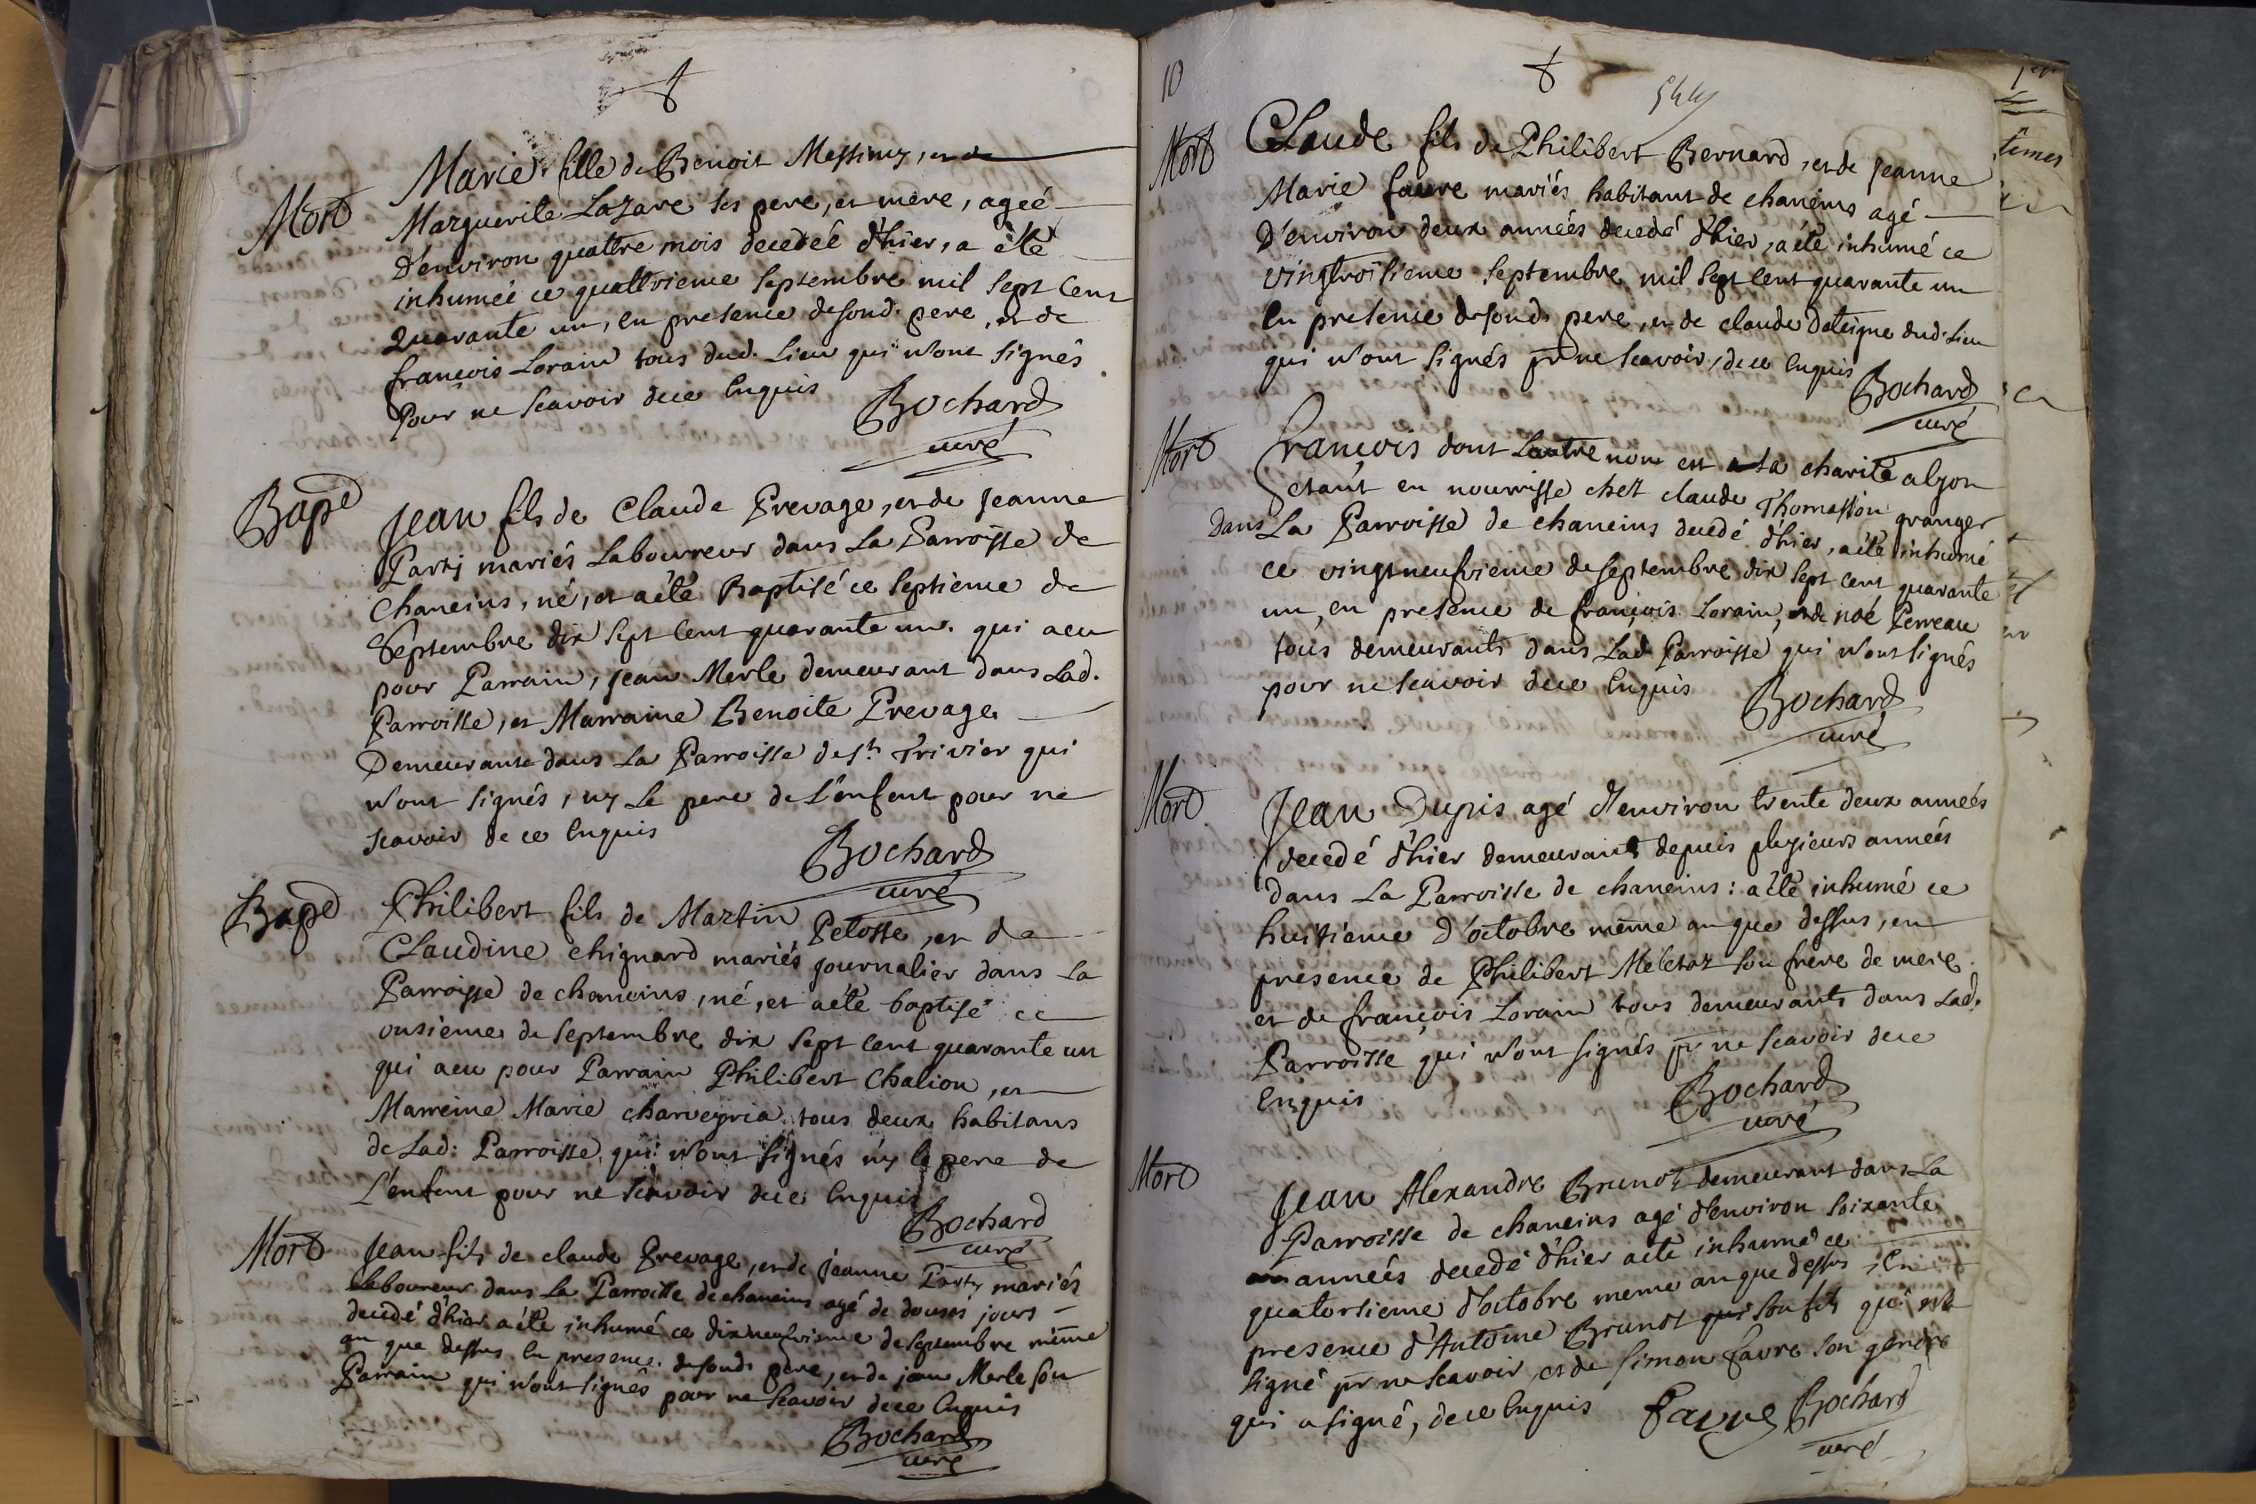 Mort
Marie fille de Benoit Messimy, et de
Marguerite Lazare ses pere, et mere, ageé
d'environ quattre mois decedeé d'hier, a été
inhumeé ce quattrieme septembre mil sept cent
quarante un, en presence desond. pere, et de
françois Lorain tous dud. Lieu qui n'ont signés
Pour ne scavoir dece Enquis
Bochard
curé
Bapt
Jean fils de Claude Prevage, et de Jeanne
Party mariés Laboureur dans La Parroisse de
Chaneins, né, et a été Baptisé ce septieme de
Septembre dix sept cent quarante un. qui a eu
pour Parrain, jean Merle demeurant dans Lad.
Parroisse, et Marraine Benoite Prevage
Demeurante dans La Parroisse de st. Trivier qui
n'ont signés, ny Le pere de L'enfent pour ne
scavoir de ce Enquis
Bochard
curé
Bapt
Philibert fils de Martin Pelosse, et de
Claudine chignard mariés journalier dans La
Parroisse de chaneins, né, et a été baptisé ce
onsieme de septembre dix sept cent quarante un
qui a eu pour Parrain Philibert Chalion, et
Marreine Marie charveyria tous deux habitans
de Lad: Parroisse, qui n'ont signés ny le pere de
L'enfent pour ne scavoir dece Enquis
Bochard
curé
Mort
Jean fils de claude Prevage, et de jeanne Party mariés
Laboureur dans La Parroisse de chaneins agé de douses jours
decedé d'hier a été inhumé ce dixneufvieme de septembre même
an que dessus en presence desond. pere, et de jean Merle son
Parrain qui n'ont signés pour ne scavoir dece Enquis
Bochard
curé
10
544
Mort
Claude fils de Philibert Bernard, et de Jeanne
Marie faure mariés habitant de chaneins agé
D'environ deux anneés decedé d'hier, a été inhumé ce
vingtroisieme septembre mil sept cent quarante un
En presence desond. pere, et de claude Dateigne dud. Lieu
qui n'ont signés pr ne scavoir, dece Enquis
Bochard
curé
Mort
François dont Lautre nom est a La charité a lyon
etant en nourrisse chez claude Thomassion granger
Dans La Parroisse de chaneins decedé d'hier, a été inhumé
ce vingtneufvieme de septembre dix sept cent quarante
un, en presence de françois Lorain, et de noé Perreau
tous demeurants dans Lad. Parroisse qui n'ont signés
pour ne scavoir dece Enquis
Bochard
curé
Mort
Jean Dupis agé d'environ trente deux anneés
decedé d'hier demeurant depuis plusieurs anneés
dans La Parroisse de chaneins: a été inhumé ce
huitieme d'octobre même an que dessus, en
presence de Philibert Meletaz son frere de mere
et de françois Lorain tous demeurants dans Lad.
Parroisse qui n'ont signés pr ne scavoir dece
Enquis
Bochard
curé
Mort
Jean Alexandre Brunot demeurant dans La
Parroisse de chaneins agé d'environ soixante
anneés decedé d'hier a été inhumé ce
quatorsieme d'octobre meme an que dessus, En
presence d'Antoine Brunot son fils qui n'a
signé pr ne scavoir, et de simon favre son gendre
qui a signé, dece Enquis
favre
Bochard
curé